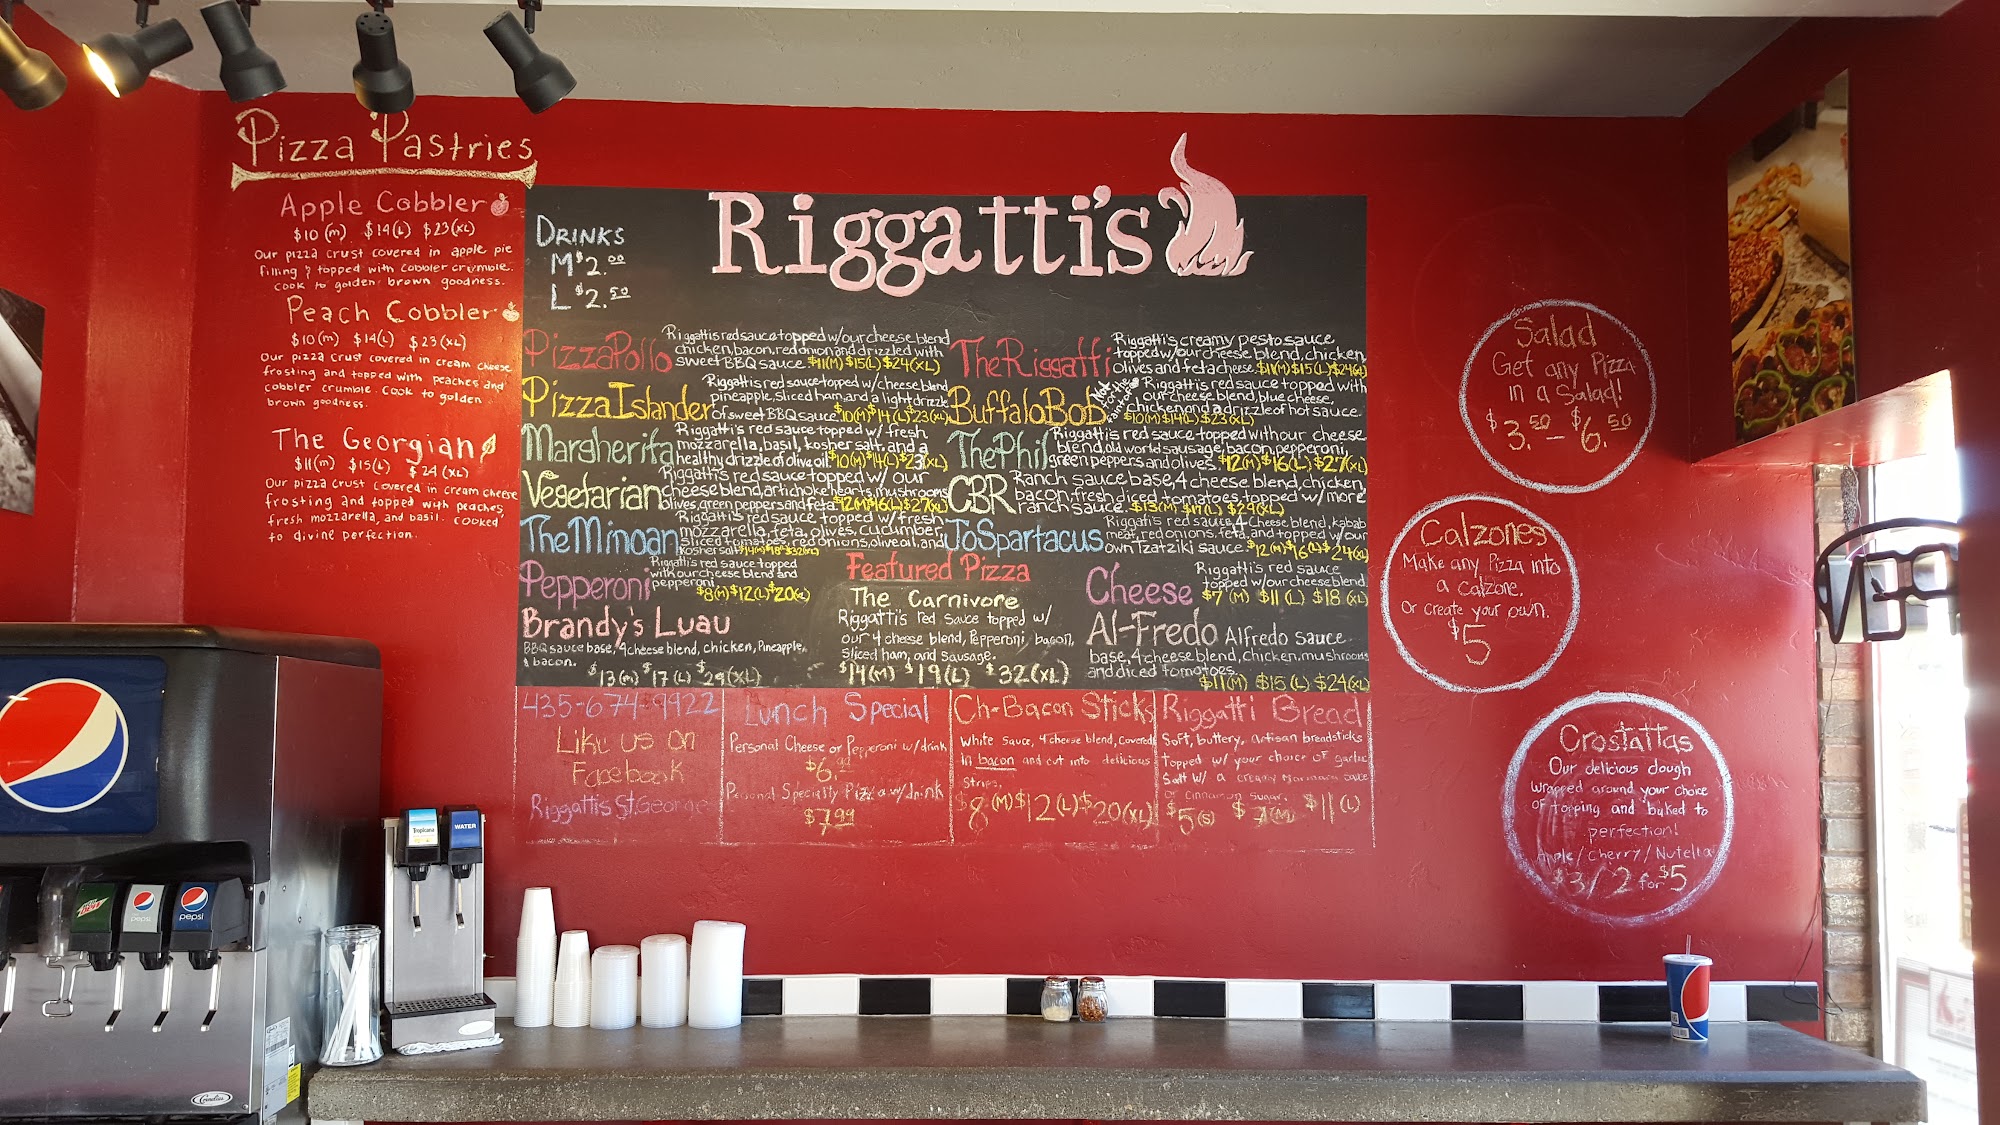 Pizza Pastries
Apple Cobbler
$10 (M) $14 (L) $23 (XL)
Our pizza crust covered in apple pie
filling & topped with cobbler crumble.
Cook to golden brown goodness.
Peach Cobbler
$10 (M) $14 (L) $23 (XL)
Our pizza crust covered in cream cheese
frosting and topped with peaches and
cobbler crumble. Cook to golden
brown goodness.
The Georgian
$11 (M) $15 (L) $24 (XL)
Our pizza crust covered in cream cheese
frosting and topped with peaches,
fresh mozzarella, and basil. Cooked
to divine perfection.
Drinks
M $2.00
L $2.50
Riggatti's
Pizza Pollo
Riggattis red sauce topped w/ our cheese blend
chicken, bacon, red onion and drizzled with
sweet BBQ sauce. $11(M) $15(L) $24(XL)
Pizza Islander
Riggattis red sauce topped w/ cheese blend
pineapple, sliced ham, and a light drizzle
of sweet BBQ sauce. $10(M) $14(L) $23(XL)
Margherita
Riggatti's red sauce topped w/ fresh
mozzarella, basil, kosher salt, and a
healthy drizzle of olive oil. $10(M) $14(L) $23(XL)
Vegetarian
Riggatti's red sauce topped w/ our
cheese blend, artichoke hearts, mushrooms
olives, green peppers and feta. $12(M) $16(L) $27(XL)
The Minoan
Riggatti's red sauce topped w/ fresh
mozzarella, feta, olives, cucumber,
sliced tomatoes, red onions, olive oil, and
kosher salt. $14(M) $18(L) $32(XL)
Pepperoni
Riggatti's red sauce topped
with our cheese blend and
pepperoni. $8(M) $12(L) $20(XL)
Brandy's Luau
BBQ sauce base, 4 cheese blend, chicken, Pineapple,
& bacon.
$13(M) $17(L) $29(XL)
The Riggatti
Riggatti's creamy pesto sauce
topped w/ our cheese blend, chicken,
olives and feta cheese. $11(M) $15(L) $24(XL)
Buffalo Bob
Riggatti's red sauce topped with
our cheese blend, blue cheese,
chicken and a drizzle of hot sauce.
$10(M) $14(L) $23(XL)
The Phil
Riggatti's red sauce topped with our cheese
blend, old world sausage, bacon, pepperoni,
green peppers and olives. $12(M) $16(L) $27(XL)
CBR
Ranch sauce base, 4 cheese blend, chicken,
bacon, fresh diced tomatoes, topped w/ more
ranch sauce. $13(M) $17(L) $29(XL)
JoSpartacus
Riggatis red sauce, 4 Cheese blend, kabab
meat, red onions, feta, and topped w/ our
own Tzatziki sauce. $12(M) $16(L) $24(XL)
Featured Pizza
The Carnivore
Riggatti's Red Sauce topped w/
our 4 cheese blend, Pepperoni, bacon,
Sliced ham, and Sausage.
$14(M) $19(L) $32(XL)
Cheese
Riggatti's red sauce
topped w/ our cheese blend.
$7 (M) $11 (L) $18 (XL)
Al-Fredo
Alfredo sauce
base, 4 cheese blend, chicken, mushrooms
and diced tomatoes.
$11(M) $15 (L) $24(XL)
435-674-9922
Like us on
Facebook
Riggattis St. George
Lunch Special
Personal Cheese or Pepperoni w/ drink
$6.99
Personal Specialty Pizza w/ drink
$7.99
Ch-Bacon Sticks
White Sauce, 4 cheese blend, Covered
In bacon and cut into delicious
Strips,
$8(M) $12(L) $20(XL)
Riggatti Bread
Soft, buttery, artisan breadsticks
topped w/ your choice of garlic
Salt w/ a creamy Marinara sauce
or Cinnamon Sugar.
$5(S) $7(M) $11(L)
Salad
Get any Pizza
in a Salad!
$3.50 - $6.50
Calzones
Make any Pizza into
a Calzone.
Or Create your own.
$5
Crostattas
Our delicious dough
wrapped around your choice
of topping and baked to
perfection!
Apple / Cherry / Nutella
$3 / 2 for $5
Tropicana
WATER
pepsi
pepsi
Cornelius